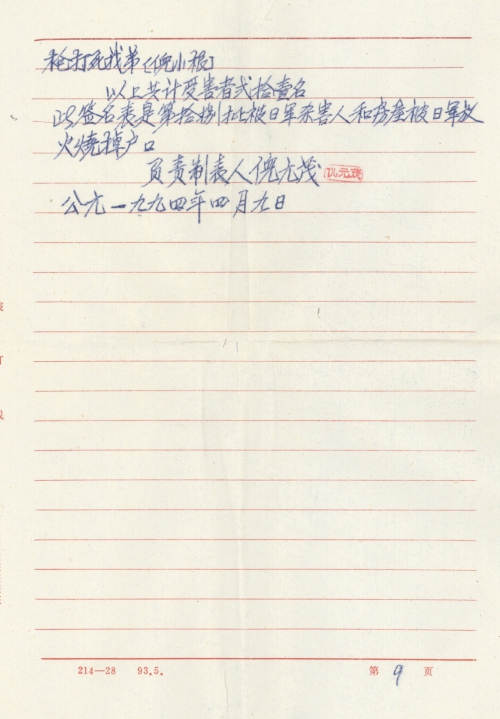 枪打死我弟〔倪小根〕
以上共计受害者弍拾壹名
此签名表是第拾捌批被日军杀害人和房屋被日军放
火烧掉户口
负责制表人倪元茂 倪元茂
公元一九九四年四月九日
214—28 93.5. 第 9 页